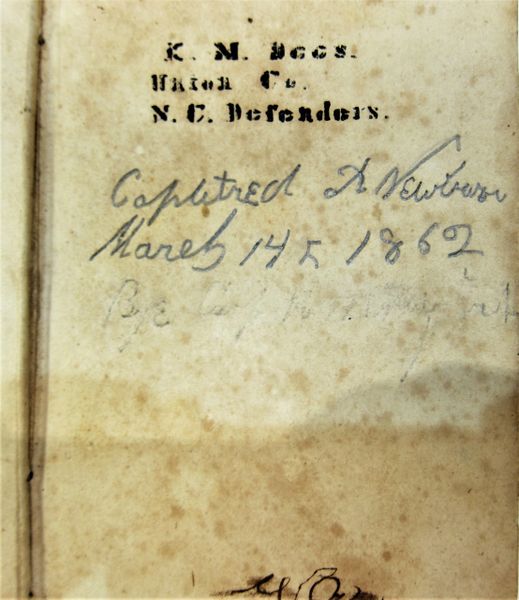 K. M. Dees.
Union Co.
N. C. Defenders.
Captured At Newbern
March 14 1862
By